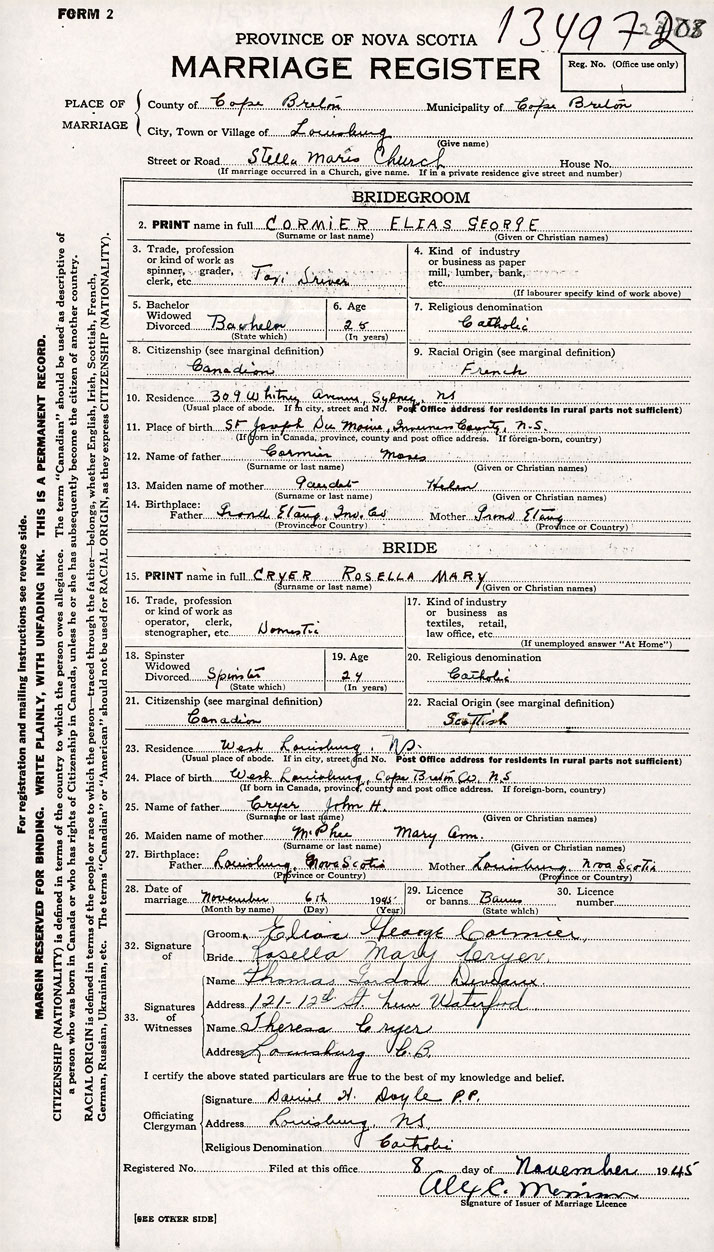 FORM 2
134972
PROVINCE OF NOVA SCOTIA
MARRIAGE REGISTER
Reg. No. (Office use only)
PLACE OF MARRIAGE
County of Cape Breton Municipality of Cape Breton
City, Town or Village of Louisburg
(Give name)
Street or Road Stella Maris Church House No.
(If marriage occurred in a Church, give name. If in a private residence give street and number)
BRIDEGROOM
2. PRINT name in full CORMIER ELIAS GEORGE
(Surname or last name) (Given or Christian names)
3. Trade, profession or kind of work as spinner, grader, clerk, etc. Taxi Driver
4. Kind of industry or business as paper mill, lumber, bank, etc.
(If labourer specify kind of work above)
5. Bachelor Widowed Divorced Bachelor
(State which)
6. Age 25
(In years)
7. Religious denomination
Catholic
8. Citizenship (see marginal definition)
Canadian
9. Racial Origin (see marginal definition)
French
10. Residence 309 Whitney Avenue, Sydney, NS
(Usual place of abode. If in city, street and No. Post Office address for residents in rural parts not sufficient)
11. Place of birth St Joseph Du Moine, Inverness County, N.S.
(If born in Canada, province, county and post office address. If foreign-born, country)
12. Name of father Cormier Moses
(Surname or last name) (Given or Christian names)
13. Maiden name of mother Gaudet Helen
(Surname or last name) (Given or Christian names)
14. Birthplace: Father Grand Etang, Inv. Co Mother Grand Etang
(Province or Country) (Province or Country)
BRIDE
15. PRINT name in full CRYER ROSELLA MARY
(Surname or last name) (Given or Christian names)
16. Trade, profession or kind of work as operator, clerk, stenographer, etc. Domestic
17. Kind of industry or business as textiles, retail, law office, etc.
(If unemployed answer "At Home")
18. Spinster Widowed Divorced Spinster
(State which)
19. Age 24
(In years)
20. Religious denomination
Catholic
21. Citizenship (see marginal definition)
Canadian
22. Racial Origin (see marginal definition)
Scottish
23. Residence West Louisburg, N.S.
(Usual place of abode. If in city, street and No. Post Office address for residents in rural parts not sufficient)
24. Place of birth West Louisburg, Cape Breton Co. N.S
(If born in Canada, province, county and post office address. If foreign-born, country)
25. Name of father Cryer John H.
(Surname or last name) (Given or Christian names)
26. Maiden name of mother McPhee Mary Ann.
(Surname or last name) (Given or Christian names)
27. Birthplace: Father Louisburg, Nova Scotia Mother Louisburg, Nova Scotia
(Province or Country) (Province or Country)
28. Date of marriage November 6th 1945
(Month by name) (Day) (Year)
29. Licence or banns Banns
(State which)
30. Licence number
32. Signature of
Groom Elias George Cormier
Bride Rosella Mary Cryer
33. Signatures of Witnesses
Name Thomas Deveaux
Address 121-12th St. New Waterford
Name Theresa Cryer
Address Louisburg C.B.
I certify the above stated particulars are true to the best of my knowledge and belief.
Officiating Clergyman
Signature Daniel H. Doyle P.P.
Address Louisburg, NS
Religious Denomination Catholic
Registered No. Filed at this office 8 day of November 1945
Alex C.
Signature of Issuer of Marriage Licence
[SEE OTHER SIDE]
For registration and mailing instructions see reverse side.
MARGIN RESERVED FOR BINDING. WRITE PLAINLY, WITH UNFADING INK. THIS IS A PERMANENT RECORD.
CITIZENSHIP (NATIONALITY) is defined in terms of the country to which the person owes allegiance. The term "Canadian" should be used as descriptive of
a person who was born in Canada or who has rights of Citizenship in Canada, unless he or she has subsequently become the citizen of another country.
RACIAL ORIGIN is defined in terms of the people or race to which the person—traced through the father—belongs, whether English, Irish, Scottish, French,
German, Russian, Ukrainian, etc. The terms "Canadian" or "American" should not be used for RACIAL ORIGIN, as they express CITIZENSHIP (NATIONALITY).